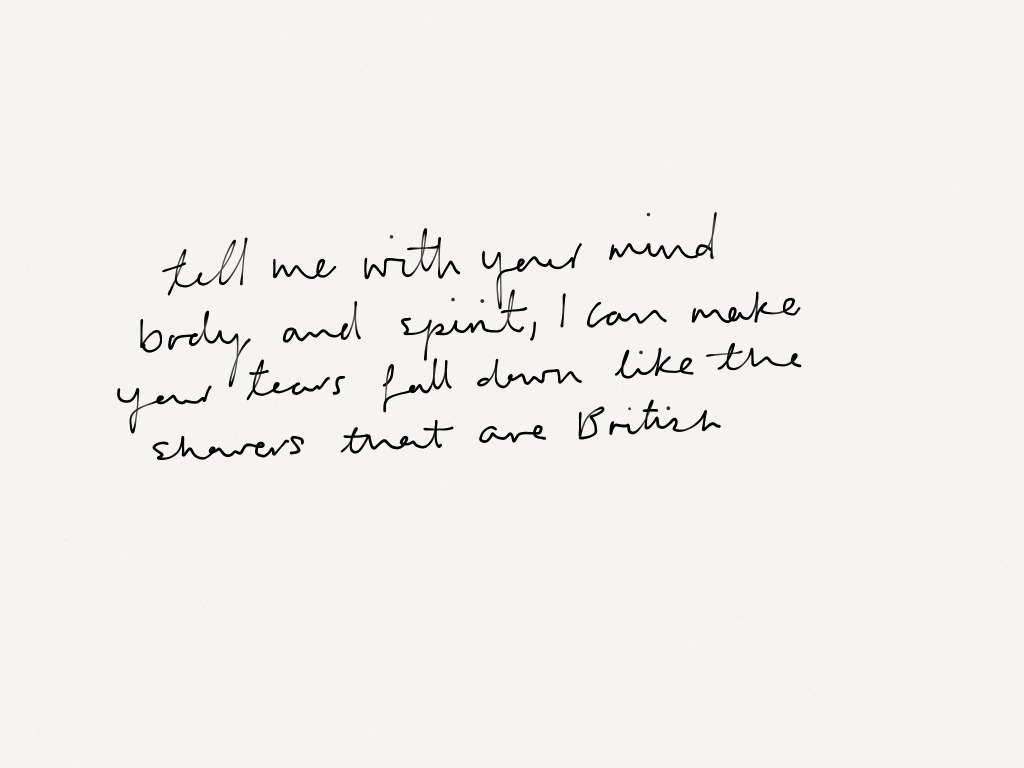 tell me with your mind
body and spirit, I can make
your tears fall down like the
showers that are British